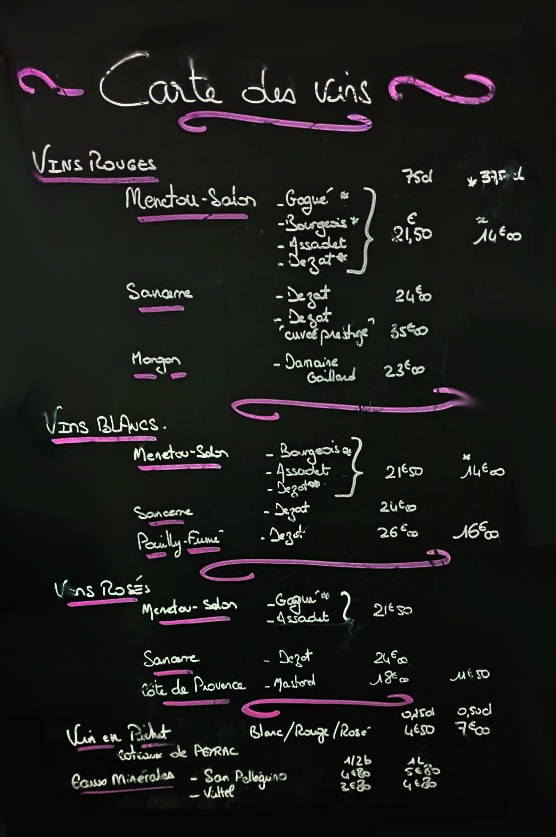 Carte des vins
VINS ROUGES
75cl *375cl
Menetou-Salon - Gogué *
- Bourgeois * € 21,50 14€00
- Assadet
- Dezat *
Sancerre - Dezat 24€00
- Dezat
"cuvée prestige" 35€00
Morgon - Domaine
Gaillard 23€00
VINS BLANCS.
Menetou-Salon - Bourgeois *
- Assadet 21€50 *14€00
- Dezat *
Sancerre - Dezat 24€00
Pouilly-Fumé - Dezat 26€00 16€00
VINS ROSÉS
Menetou-Salon - Gogué * 21€50
- Assadet
Sancerre - Dezat 24€00
Côte de Provence - 18€00 11€50
0,25cl 0,50cl
Vin en Pichet Blanc/Rouge/Rosé 4€50 7€00
Coteaux de PEYRAC
1/2b 1L
Eaux Minérales - San Pellegrino 4€80 5€80
- Vittel 3€80 4€80